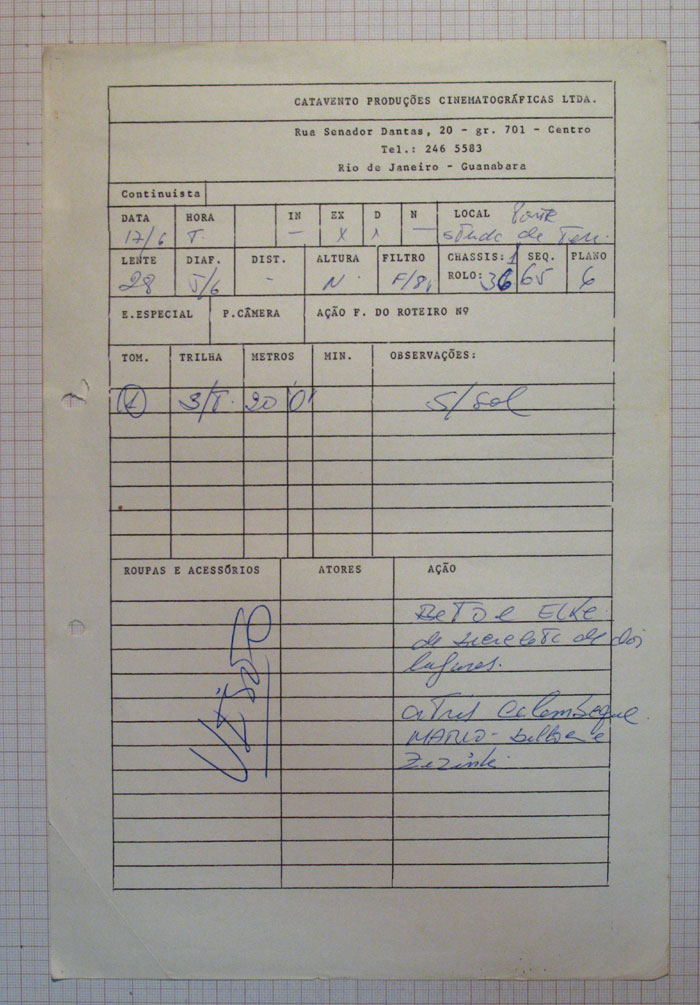 CATAVENTO PRODUÇÕES CINEMATOGRÁFICAS LTDA.
Rua Senador Dantas, 20 - gr. 701 - Centro
Tel.: 246 5583
Rio de Janeiro - Guanabara
Continuista
DATA HORA IN EX D N LOCAL
17/6 T. — X — de Terr.
LENTE DIAF. DIST. ALTURA FILTRO CHASSIS: 1 SEQ. PLANO
28 5/6 - N F/8 ROLO: 36 65 6
E.ESPECIAL P.CÂMERA AÇÃO F. DO ROTEIRO Nº
TOM. TRILHA METROS MIN. OBSERVAÇÕES:
1 S/T. 20 '0' S/Sol
ROUPAS E ACESSÓRIOS ATORES AÇÃO
BeTo e ELKe
de bicicleta de dois
lugares.
atrás Calambeque
MARIO - e
Zezinho.